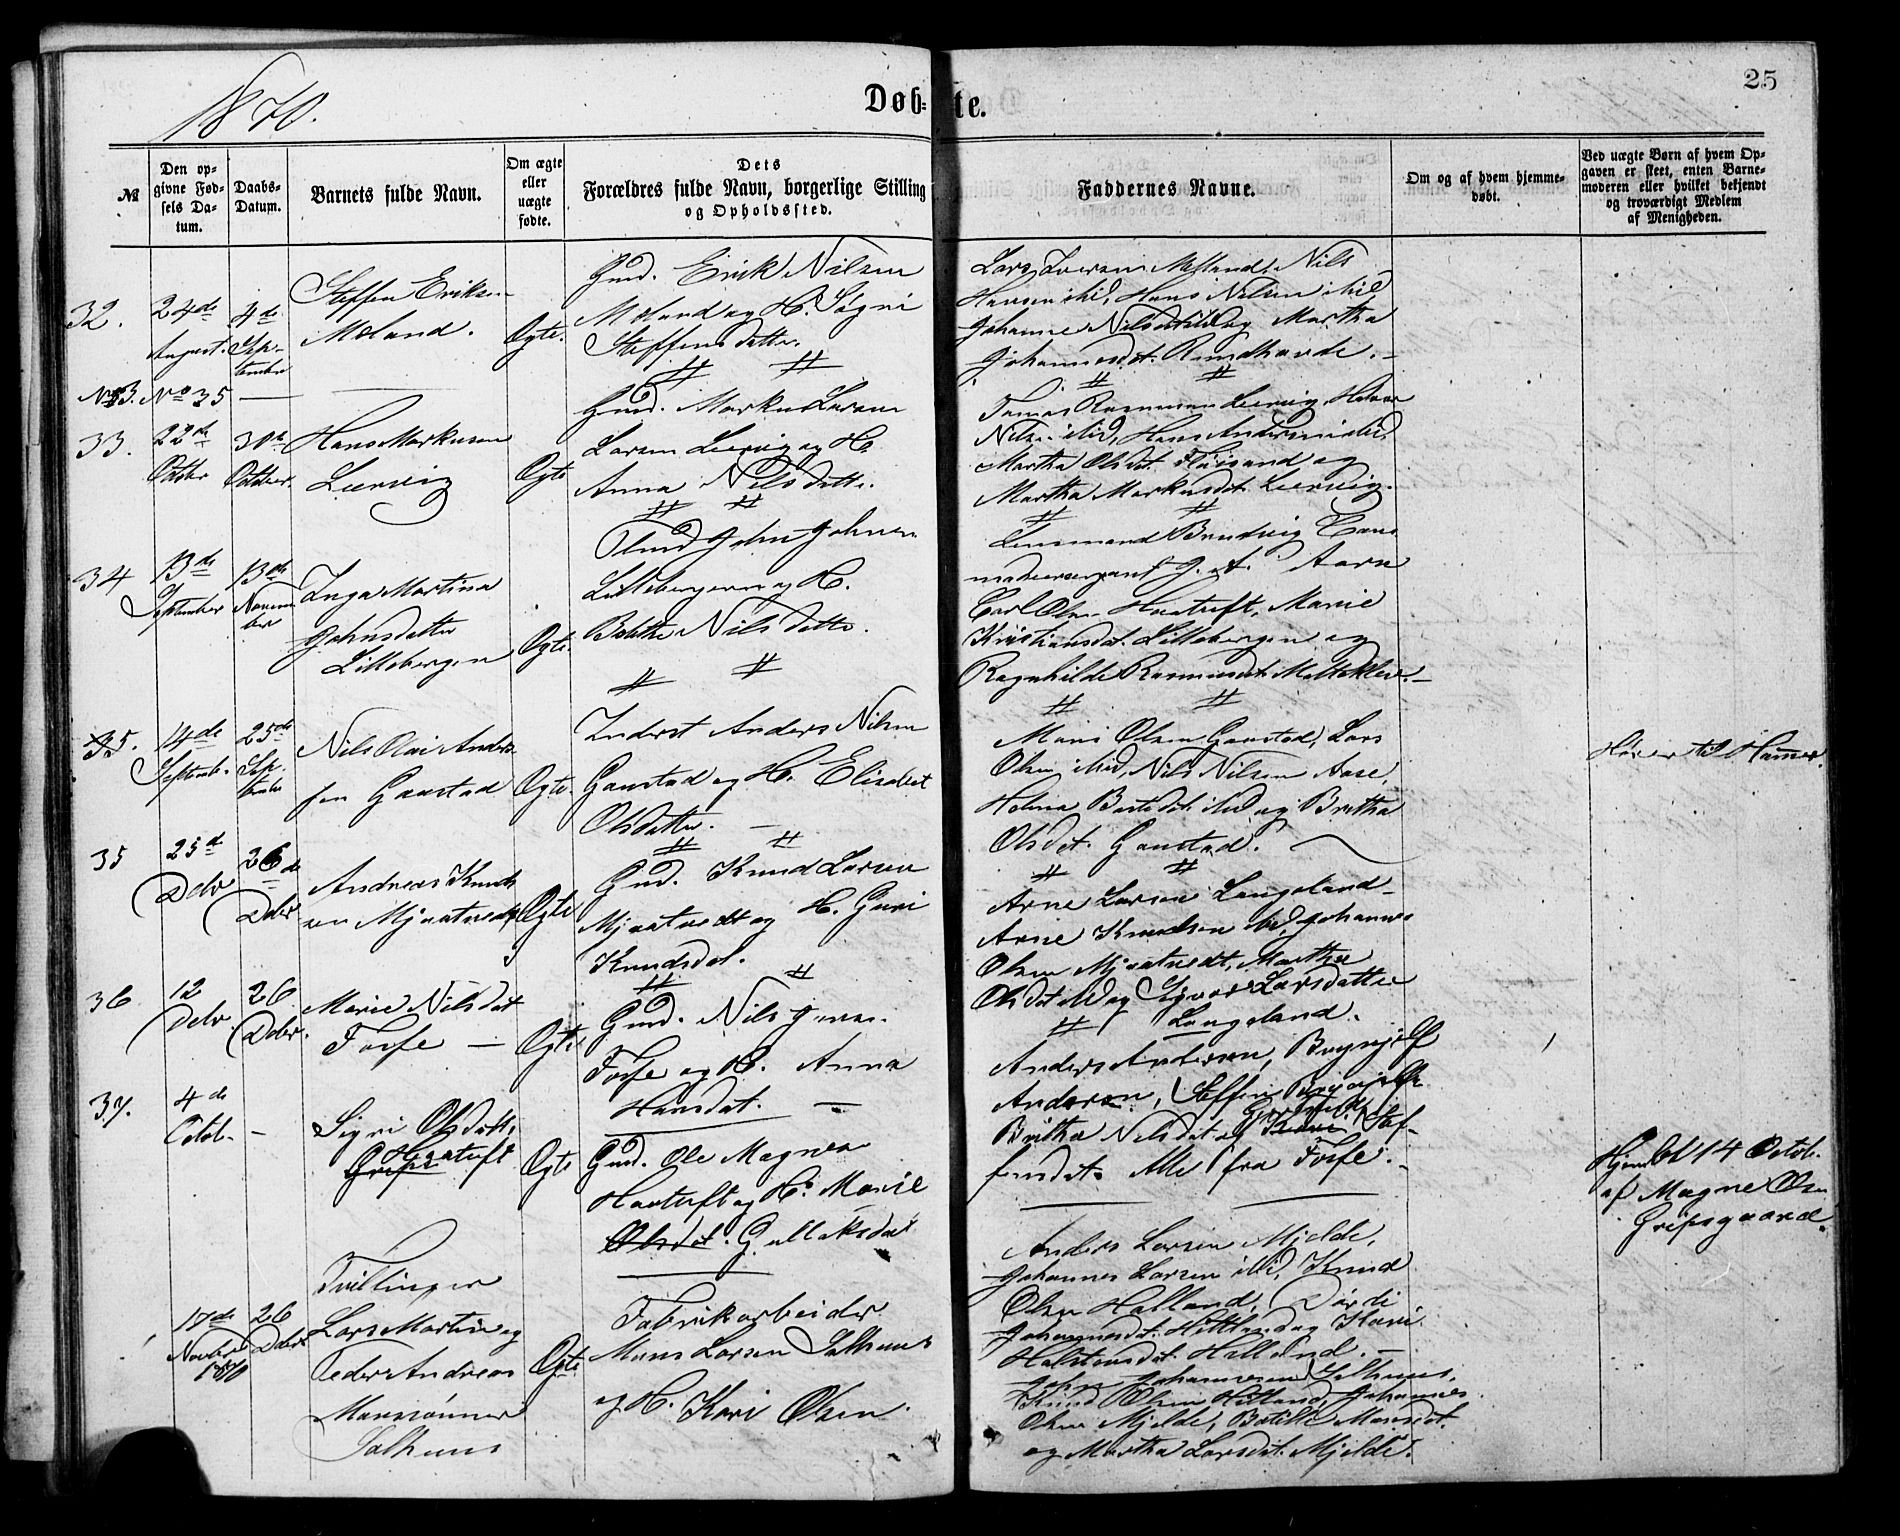 1870.
Døb-
te.
25
№
Den op-
givne Fød-
sels Da-
tum.
Daabs-
Datum.
Barnets fulde Navn.
Om ægte
eller
uægte
fødte.
Dets
Forældres fulde Navn, borgerlige Stilling
og Opholdssted.
Faddernes Navne.
Om og af hvem hjemme-
døbt.
Ved uægte Børn af hvem Op-
gaven er skeet, enten Barne-
moderen eller hvilket bekjendt
og troværdigt Medlem
af Menigheden.
32.
24de
August.
4de
Sep-
tember
Steffen Eriksen
Moland.
Ægte.
Gmd. Erik Nilsen
Moland og H. Søgni
Steffensdatter.
Lars Iversen Nils
Hansen ibid, Hans Nilsen ibid
Johanne og Martha
Johannesdt. Rundhovde.
No 35
33.
22de
Octbr
30te
October.
Hans Markusen
Leervig
Ægte
Gmd. Markus Larsen
Larsen Leervig og H.
Anna Nilsdatter.
Tomas Rasmussen Leervig,
Nilsen ibid, Hans Andersen ibid,
Martha Olsdt. og
Martha Markusdt. Leervig.
34
13de
September
13de
Novem-
ber
Inga Martina
Johnsdatter
Lillebergen
Ægte.
John Johnsen
Lillebergen og H.
Nilsdatter.
Lensmand Brudvig
Aarne
Carl Olsen Haatuft, Marie
Kristiansdat. Lillebergen og
Ragnhilde Rasmusdt.
35.
14de
Septemb.
25de
Sep-
tember
Nils Olai Anders-
sen Gaustad
Ægte.
Inderst Anders Nilsen
Gaustad og H. Elisabet
Olsdatter.
Mons Olsen Gaustad, Lars
Olsen ibid, Nils Nilsen Aase,
Helena ibid og Brittha
Olsdt. Gaustad.
Hører til Hammer.
35
25de
Octbr
26de
Dcbr
Andreas Knuds-
sen Mjaatvedt
Ægte
Gmd. Knud Larsen
Mjaatvedt og H. Guri
Knudsdat.
Arne Larsen Langeland
Arne Knudsen ibid, Johannes
Olsen Mjaatvedt, Martha
Olsdt ibid og Larsdatter
Langeland.
36
12
Octbr
26
Dcbr.
Marie Nilsdat
Fosse
Ægte
Gmd. Nils
Fosse og H. Anna
Hansdat.
Anders Andersen, Brynjulf
Andersen, Steffen
Brittha Nilsdt og Stef-
fensdt. Alle fra Fosse.
37.
4de
Octob.
Sigri Olsdatter
Haatuft
Ægte
Gmd. Ole Magnesen
Haatuft og H. Marie
Olsdat. Gullaksdat
Hjemdbt 14 Octob.
af Magne Olsen
Gripsgaard.
17de
Novbr
1870
26
Dcbr
Tvillinger
Lars Martin og
Peder Andreas
Monssønner
Salhuus
Ægte
Fabrikarbeider
Mons Larsen Salhuus
og H. Kari Olsen.
Anders Larsen Mjelde,
Johannes Larsen ibid, Knud
Olsen Helland,
Johannesdt. Hitland og Kari
Halstensdt. Helland.
Johannesen Salhuus,
Knud Olsen Hitland, Johannes
Olsen Mjelde, Monsdt.
og Martha Larsdt. Mjelde.